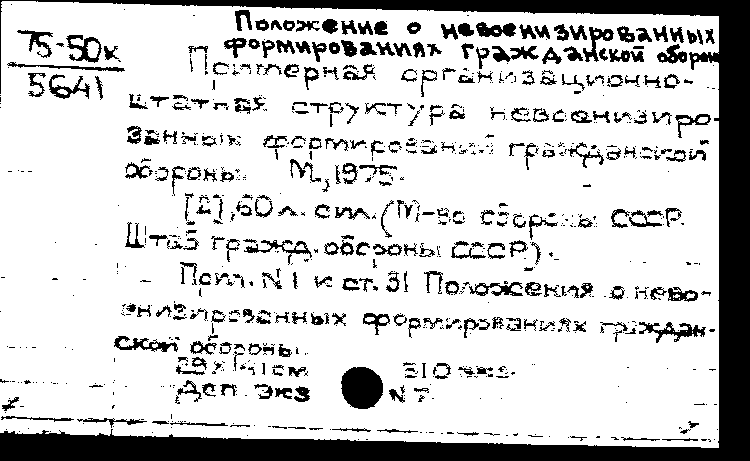 Положение о невоенизированных
формированиях гражданской оборон
75-50к
5641
Примерная организационно-
штатная структура невоенизиро-
ванных формирований гражданской
обороны. М., 1975.
[2], 60 л. с ил. (М-во обороны СССР.
Штаб гражд. обороны СССР).
Прил. N 1 к ст. 31 Положения о нево-
енизированных формированиях граждан-
ской обороны.
см 310 экз.
Деп. экз N 7